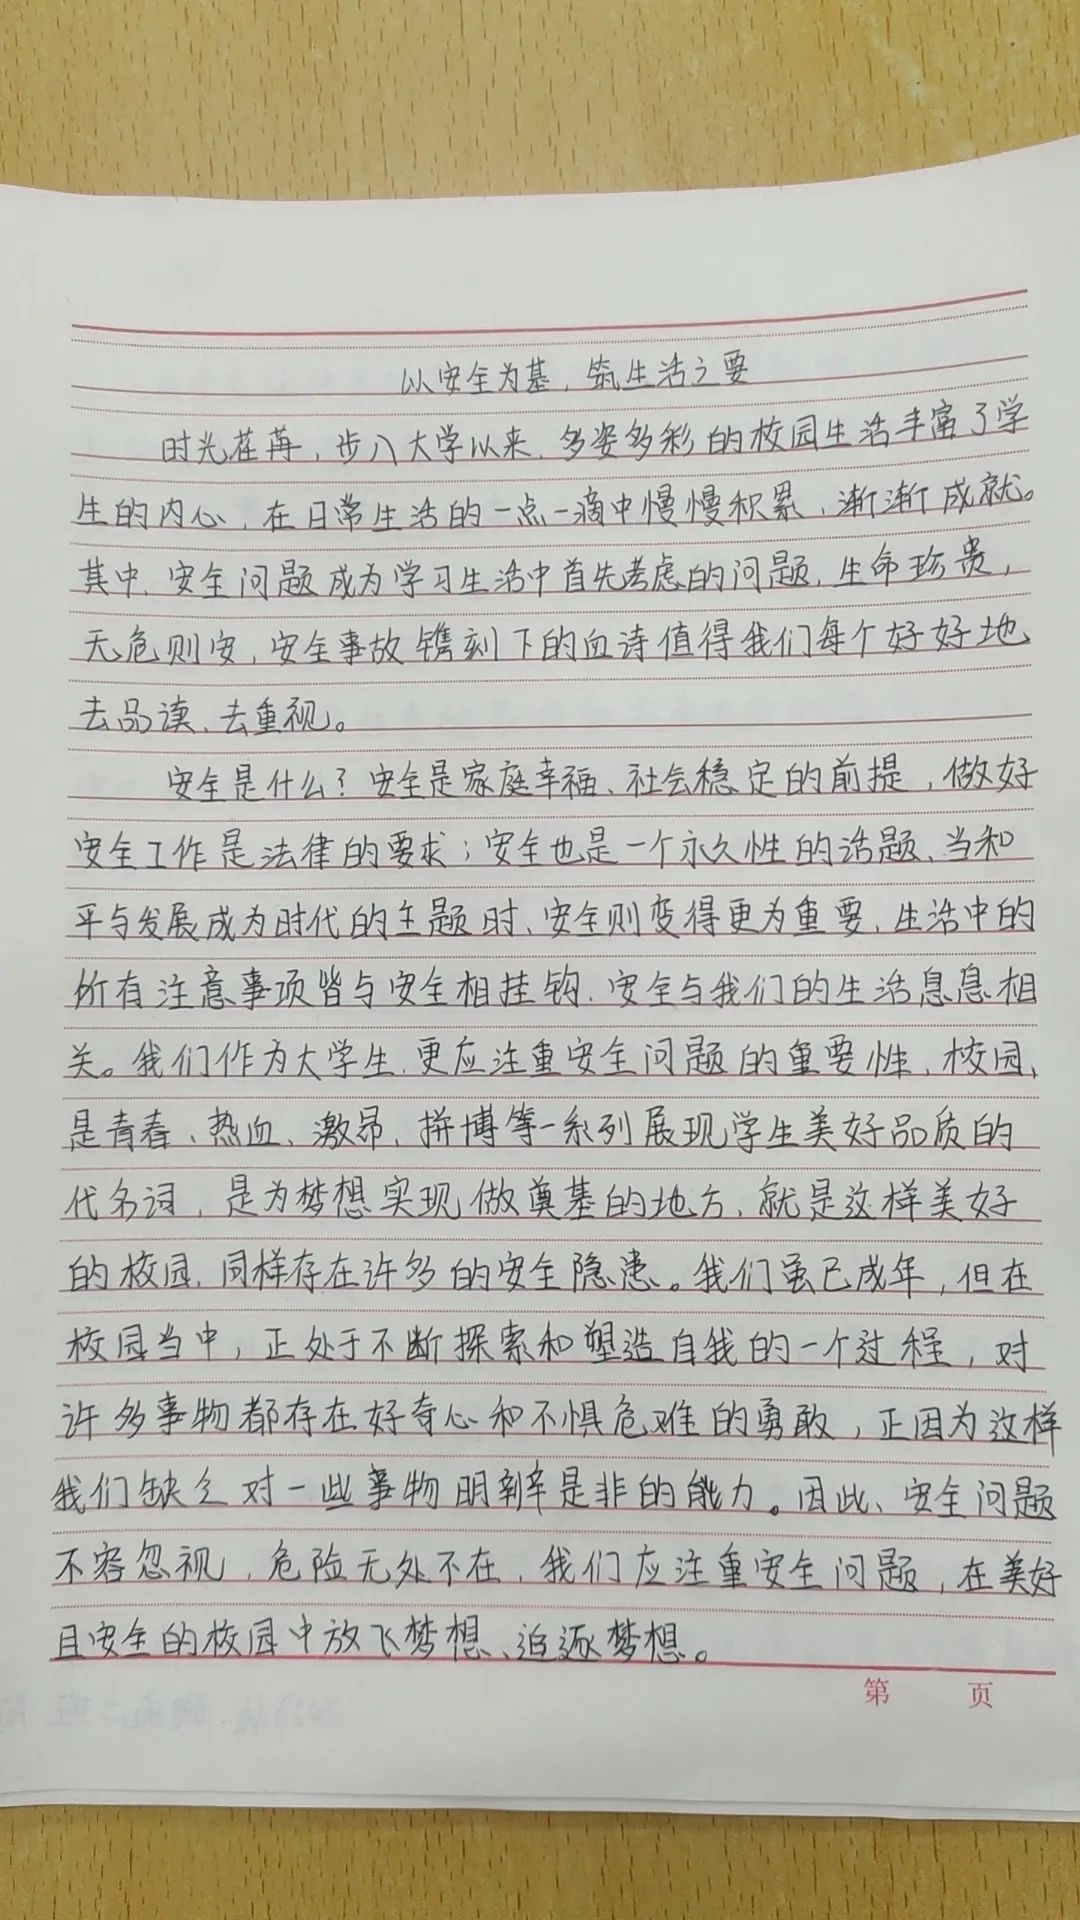 以安全为基，筑生活之要
时光荏苒，步入大学以来，多姿多彩的校园生活丰富了学
生的内心，在日常生活的一点一滴中慢慢积累，渐渐成就。
其中，安全问题成为学习生活中首先考虑的问题，生命珍贵，
无危则安，安全事故镌刻下的血诗值得我们每个好好地
去品读、去重视。
安全是什么？安全是家庭幸福、社会稳定的前提，做好
安全工作是法律的要求；安全也是一个永久性的话题、当和
平与发展成为时代的主题时，安全则变得更为重要，生活中的
所有注意事项皆与安全相挂钩，安全与我们的生活息息相
关。我们作为大学生，更应注重安全问题的重要性，校园，
是青春、热血、激昂、拼博等一系列展现学生美好品质的
代名词，是为梦想实现做奠基的地方，就是这样美好
的校园，同样存在许多的安全隐患。我们虽已成年，但在
校园当中，正处于不断探索和塑造自我的一个过程，对
许多事物都存在好奇心和不惧危难的勇敢，正因为这样
我们缺乏对一些事物明辨是非的能力。因此、安全问题
不容忽视，危险无处不在，我们应注重安全问题，在美好
且安全的校园中放飞梦想、追逐梦想。
第 页